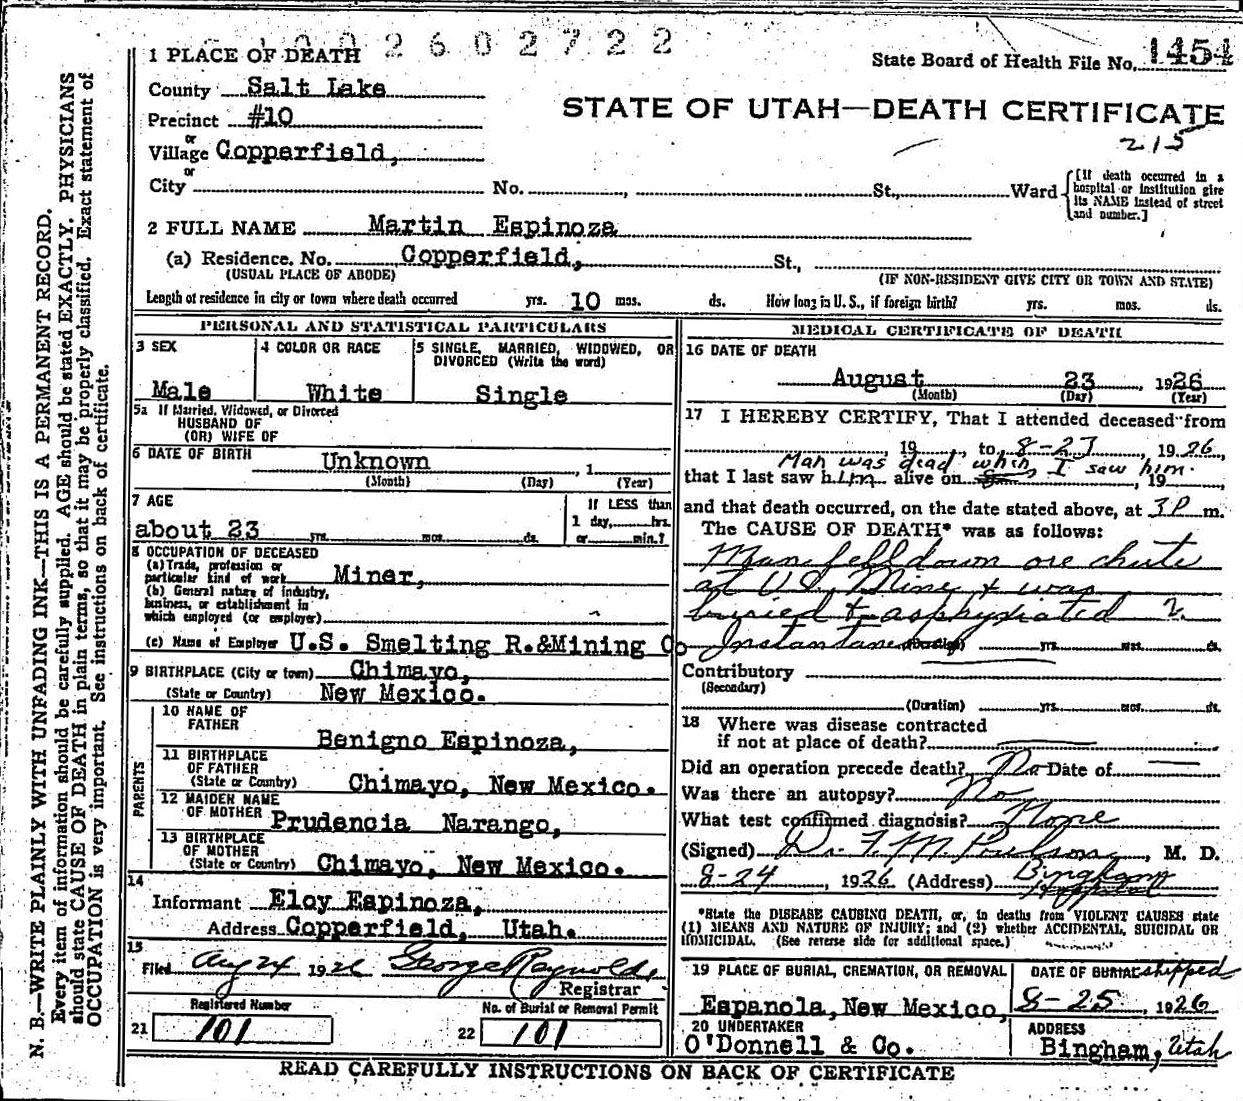 N. B.—WRITE PLAINLY WITH UNFADING INK—THIS IS A PERMANENT RECORD.
Every item of information should be carefully supplied. AGE should be stated EXACTLY. PHYSICIANS
should state CAUSE OF DEATH in plain terms, so that it may be properly classified. Exact statement of
OCCUPATION is very important. See instructions on back of certificate.
2602722
State Board of Health File No. 1454
STATE OF UTAH—DEATH CERTIFICATE
215
1 PLACE OF DEATH
County Salt Lake
Precinct #10
or
Village Copperfield,
or
City No. , St., Ward
[If death occurred in a
hospital or institution give
its NAME instead of street
and number.]
2 FULL NAME Martin Espinoza
(a) Residence. No. Copperfield, St.,
(USUAL PLACE OF ABODE) (IF NON-RESIDENT GIVE CITY OR TOWN AND STATE)
Length of residence in city or town where death occurred yrs. 10 mos. ds. How long in U. S., if foreign birth? yrs. mos. ds.
PERSONAL AND STATISTICAL PARTICULARS
3 SEX
Male
4 COLOR OR RACE
White
5 SINGLE, MARRIED, WIDOWED, OR
DIVORCED (Write the word)
Single
5a If Married, Widowed, or Divorced
HUSBAND OF
(OR) WIFE OF
6 DATE OF BIRTH Unknown , 1
(Month) (Day) (Year)
7 AGE
about 23 yrs. mos. ds.
If LESS than
1 day, hrs.
or min.?
8 OCCUPATION OF DECEASED
(a) Trade, profession or
particular kind of work Miner,
(b) General nature of industry,
business, or establishment in
which employed (or employer)
(c) Name of Employer U.S. Smelting R.&Mining Co
9 BIRTHPLACE (City or town) Chimayo,
(State or Country) New Mexico.
PARENTS
10 NAME OF
FATHER
Benigno Espinoza,
11 BIRTHPLACE
OF FATHER
(State or Country) Chimayo, New Mexico.
12 MAIDEN NAME
OF MOTHER Prudencia Narango,
13 BIRTHPLACE
OF MOTHER
(State or Country) Chimayo, New Mexico.
14
Informant Eloy Espinoza,
Address Copperfield, Utah.
15
Filed Aug 24 1926 George Reynolds
Registrar
Registered Number
21 101
No. of Burial or Removal Permit
22 101
MEDICAL CERTIFICATE OF DEATH
16 DATE OF DEATH
August 23 , 1926
(Month) (Day) (Year)
17 I HEREBY CERTIFY, That I attended deceased from
, 19 , to 8-23 , 1926,
Man was dead when I saw him.
that I last saw him alive on , 19 ,
and that death occurred, on the date stated above, at 3P m.
The CAUSE OF DEATH* was as follows:
Man fell down ore chute
at U.S. Mine & was
buried & asphyxiated
Instantaneously (Duration) yrs. mos. ds.
Contributory
(Secondary)
(Duration) yrs. mos. ds.
18 Where was disease contracted
if not at place of death?
Did an operation precede death? No Date of
Was there an autopsy? No
What test confirmed diagnosis? None
(Signed) Dr. F. M. Paulson , M. D.
8-24 , 1926 (Address) Bingham
Hospital
*State the DISEASE CAUSING DEATH, or, in deaths from VIOLENT CAUSES state
(1) MEANS AND NATURE OF INJURY; and (2) whether ACCIDENTAL, SUICIDAL OR
HOMICIDAL. (See reverse side for additional space.)
19 PLACE OF BURIAL, CREMATION, OR REMOVAL
Espanola, New Mexico,
DATE OF BURIAL shipped
8-25 , 1926
20 UNDERTAKER
O'Donnell & Co.
ADDRESS
Bingham, Utah
READ CAREFULLY INSTRUCTIONS ON BACK OF CERTIFICATE